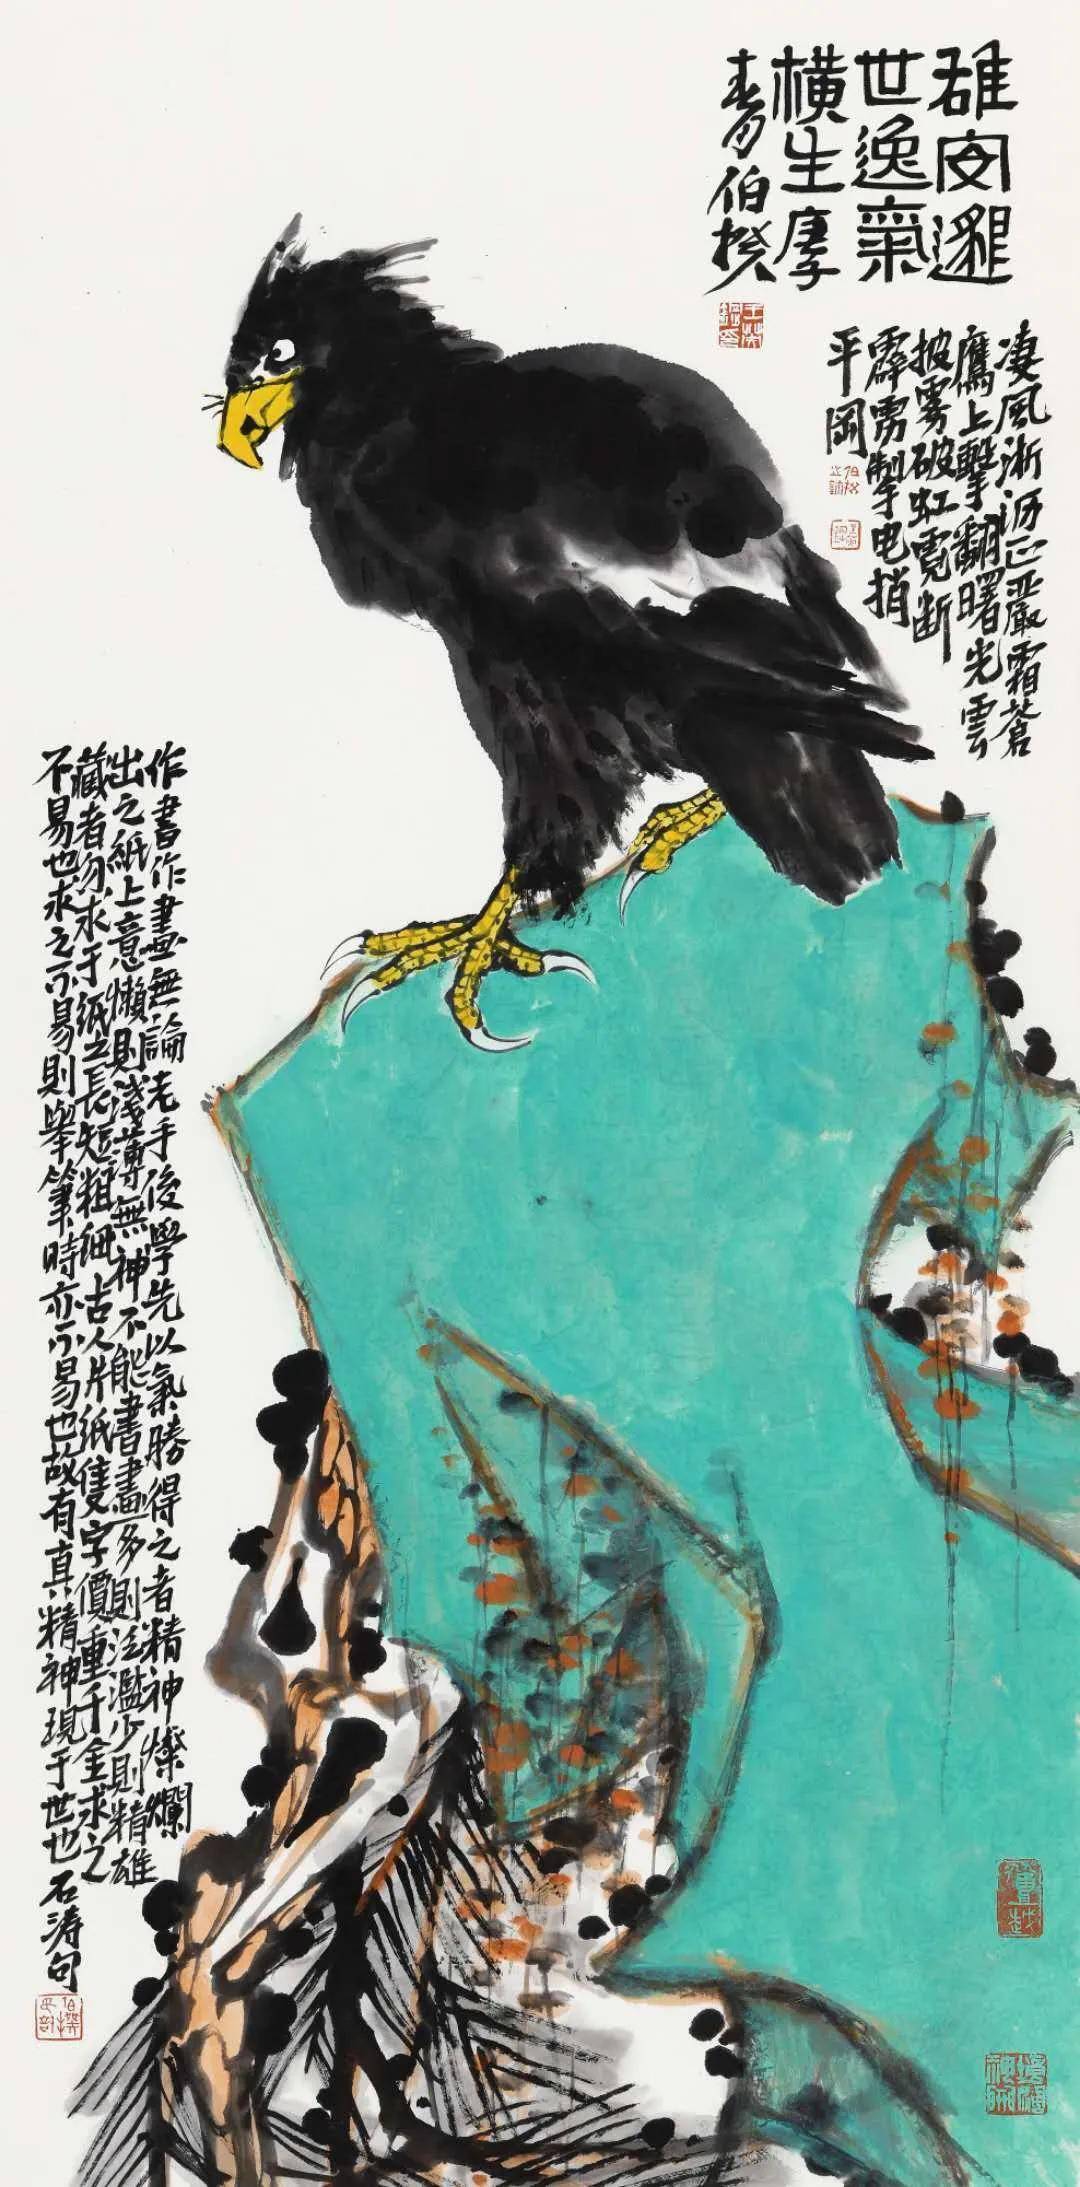 雄安邈
世逸氣
橫生厚
春伯揆
凄風淅沥正嚴霜蒼
鷹上擊翻曙光雲
披雾破虹霓断
霹雳掣电捎
平岡
作書作畫無論老手後學先以氣勝得之者精神燦爛
出之紙上意懶則淺薄無神不能書畫多則泛濫少則精雄
藏者勿求于紙之長短粗細古人片紙隻字價重千金求之
不易也求之不易則舉筆時亦不易也故有真精神現于世也石涛句